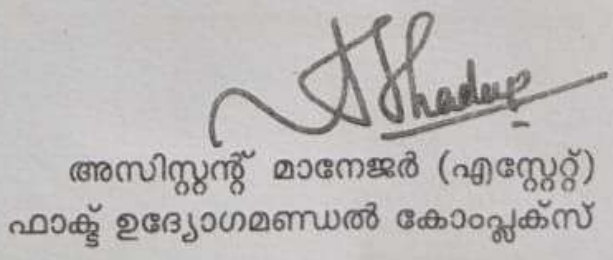 അസിസ്റ്റന്റ് മാനേജർ (എസ്റ്റേറ്റ്)
ഫാക്ട് ഉദ്യോഗമണ്ഡൽ കോംപ്ലക്സ്